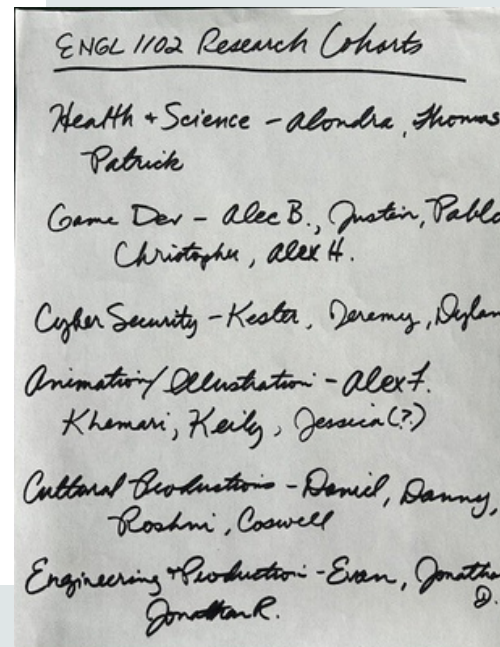 ENGL 1102 Research Cohorts
Health + Science - Alondra, Thomas
Patrick
Game Dev - Alec B., Justin, Pablo
Christopher, Alex H.
Cyber Security - Kester, Jeremy, Dylan
Animation/Illustration - Alex F.
Khemari, Keily, Jessica(?)
Cultural Productions - Daniel, Danny,
Roshni, Coswell
Engineering + Production - Evan, Jonatha
D.
Jonathan R.